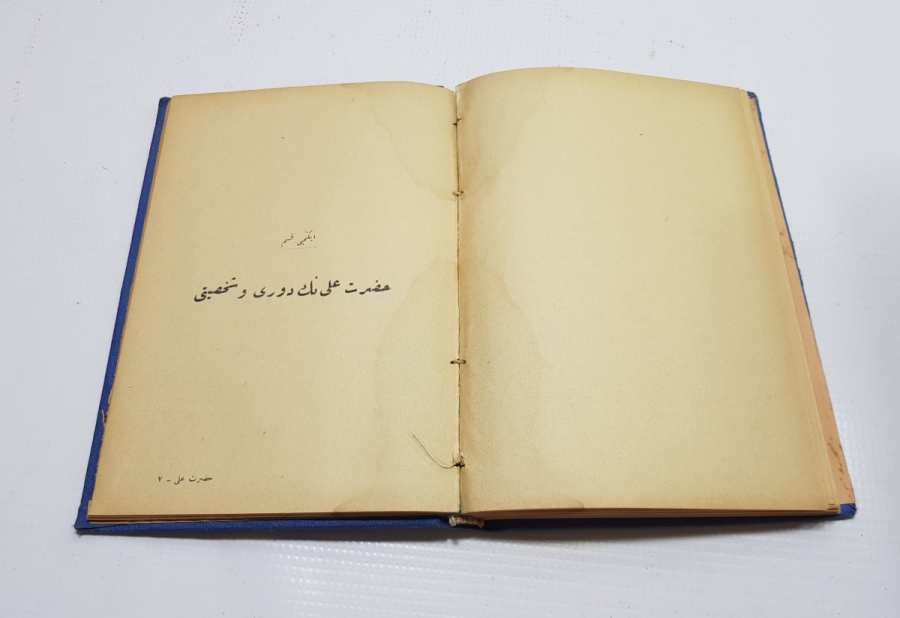 ایكنجی قسم
حضرت علی نك دوری و شخصیتی
حضرت علی - ٧